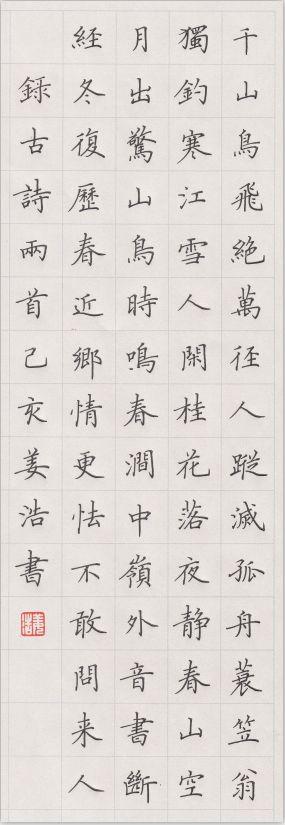 千山鳥飛絕萬徑人蹤滅孤舟蓑笠翁
獨釣寒江雪人閑桂花落夜靜春山空
月出驚山鳥時鳴春澗中嶺外音書斷
經冬復歷春近鄉情更怯不敢問来人
録古詩兩首己亥姜浩書
姜浩